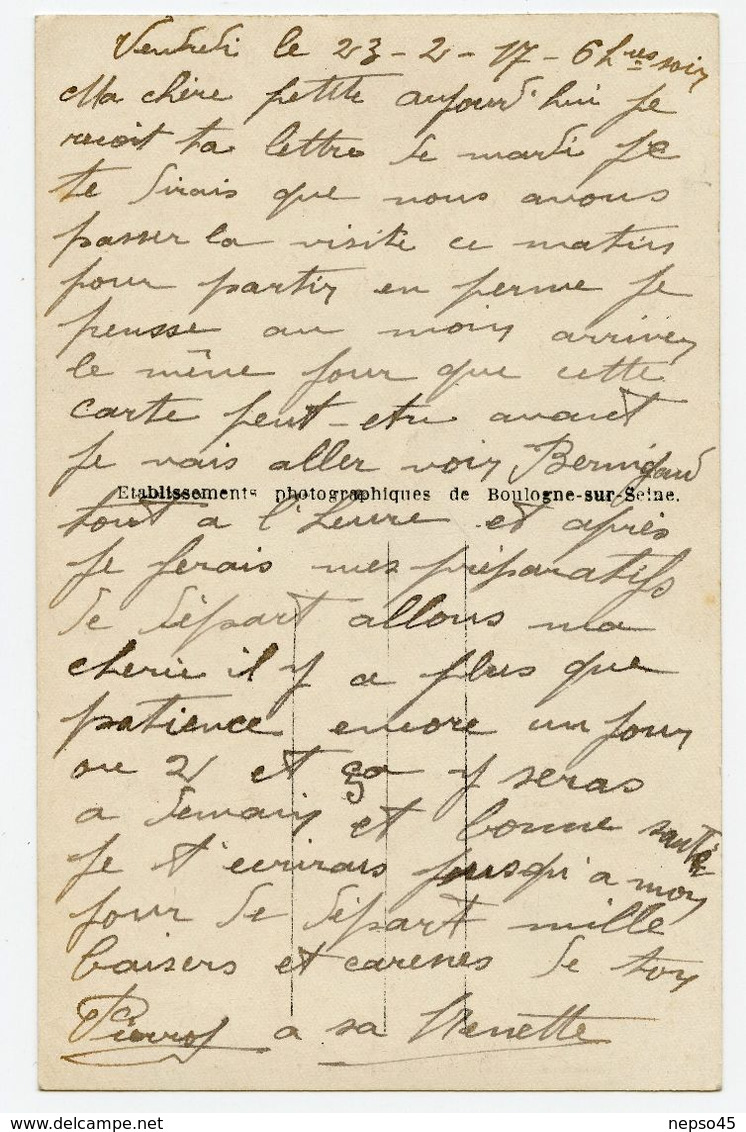 Vendredi le 23-2-17-6 hres soir
Ma chère petite aujourd'hui je
reçoit ta lettre de mardi je
te dirais que nous avons
passer la visite ce matin
pour partir en perme je
pensse au moin arriver
le même jour que cette
carte peut-etre avant
je vais aller voir
Etablissements photographiques de Boulogne-sur-Seine.
tout a l'heure et après
je ferais mes préparatifs
de départ allons ma
cherie il y a plus que
patience encore un jour
ou 2 et ça y seras
a demain et bonne santé
je t'ecrirais jusqu'a mon
jour de départ mille
baisers et careses de ton
Pierrot a sa Nenette
nepso45